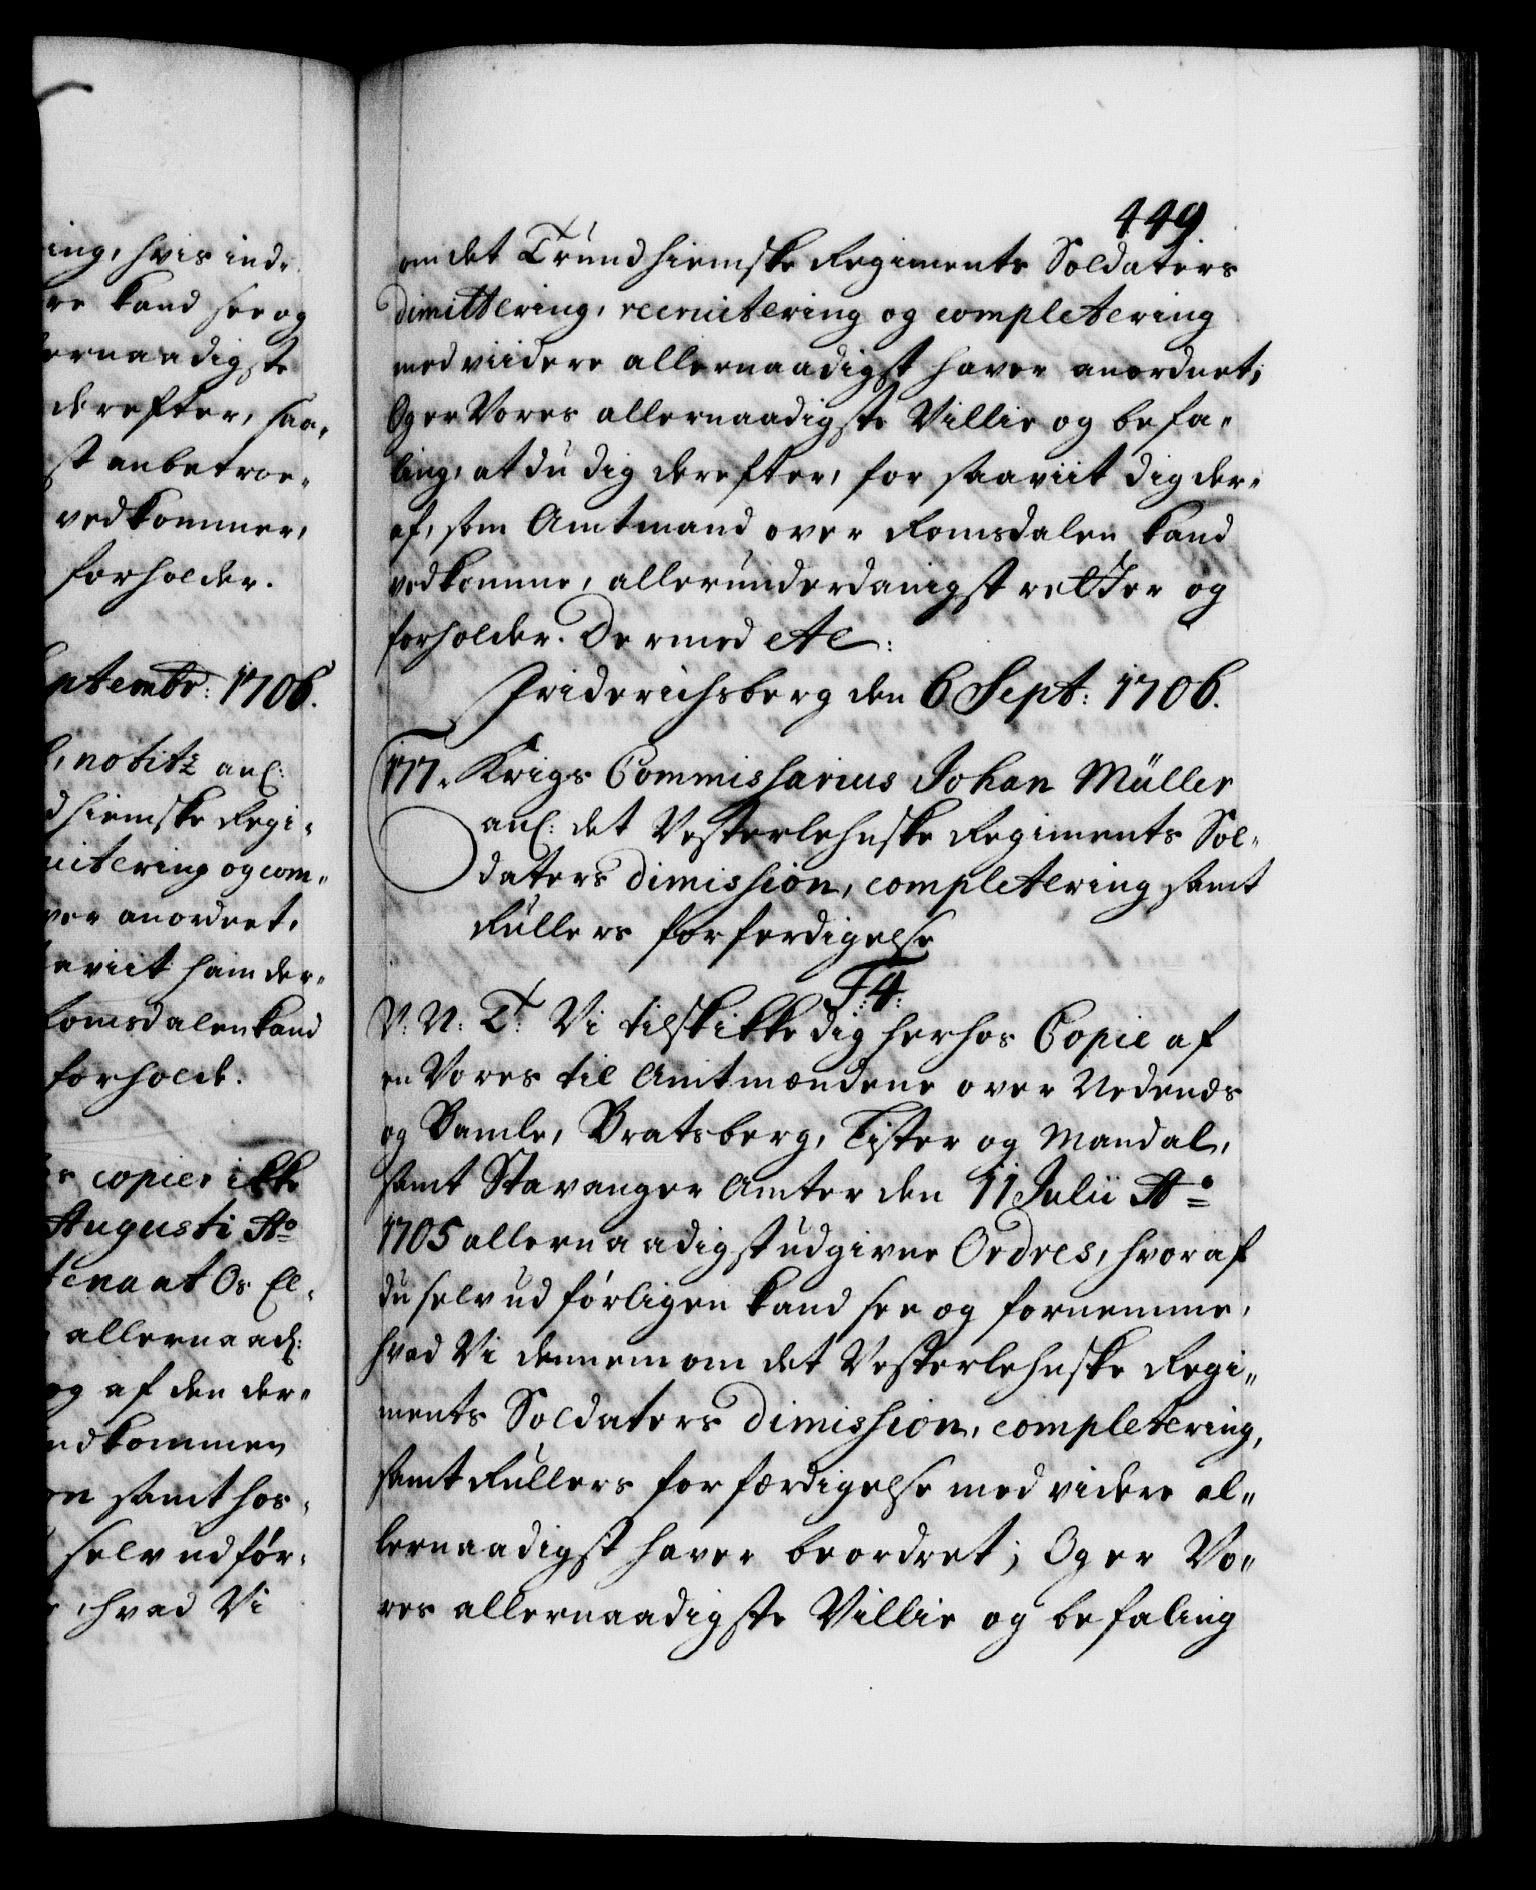 ing, hvis ind-
re kand see og
ernaadigste
derefter, saa,
st anbetroe-
vedkommer,
forholder.
ptembr: 1706.
notitz anl:
dhiemske Regi-
uitering og com-
ver anordnet,
aviit ham der-
Romsdalen kand
forholde.
copie, ikke
Augusti Ao
tenant Os El-
allernaad:
og af den der-
ndkommen
en samt hos-
selv udfør-
, hvad Vi
449
om det Trundhiemske Regiments Soldaters
dimittering, recruitering og completering
med viidere allernaadigst haver anordnet;
Og er Vores allernaadigste Villie og befa-
ling, at du dig derefter, for saaviit dig der-
af, som Amtmand over Romsdalen kand
vedkomme, allerunderdanigst retter og
forholder. Dermed etc:
Friderichsberg den 6 Sept: 1706.
177. Krigs Commissarius Johan Müller
anl: det Vesterlehnske Regiments Sol-
daters dimission, completering samt
Rullers forferdigelse
F: 4:
V: N: T: Vi tilskikke dig herhos Copie af
en Vores til Amtmændene over Nedenæs
og Bamle, Bratsberg, Lister og Mandal,
samt Stavanger Amter den 11 Julii Ao
1705 allernaadigst udgivne Ordres, hvoraf
du selv udførligen kand see og fornemme,
hvad Vi dennem om det Vesterlehnske Regi-
ments Soldaters dimission, completering,
samt Rullers forfærdigelse med videre al-
lernaadigst haver beordret; Og er Vo-
res allernaadigste Villie og befaling